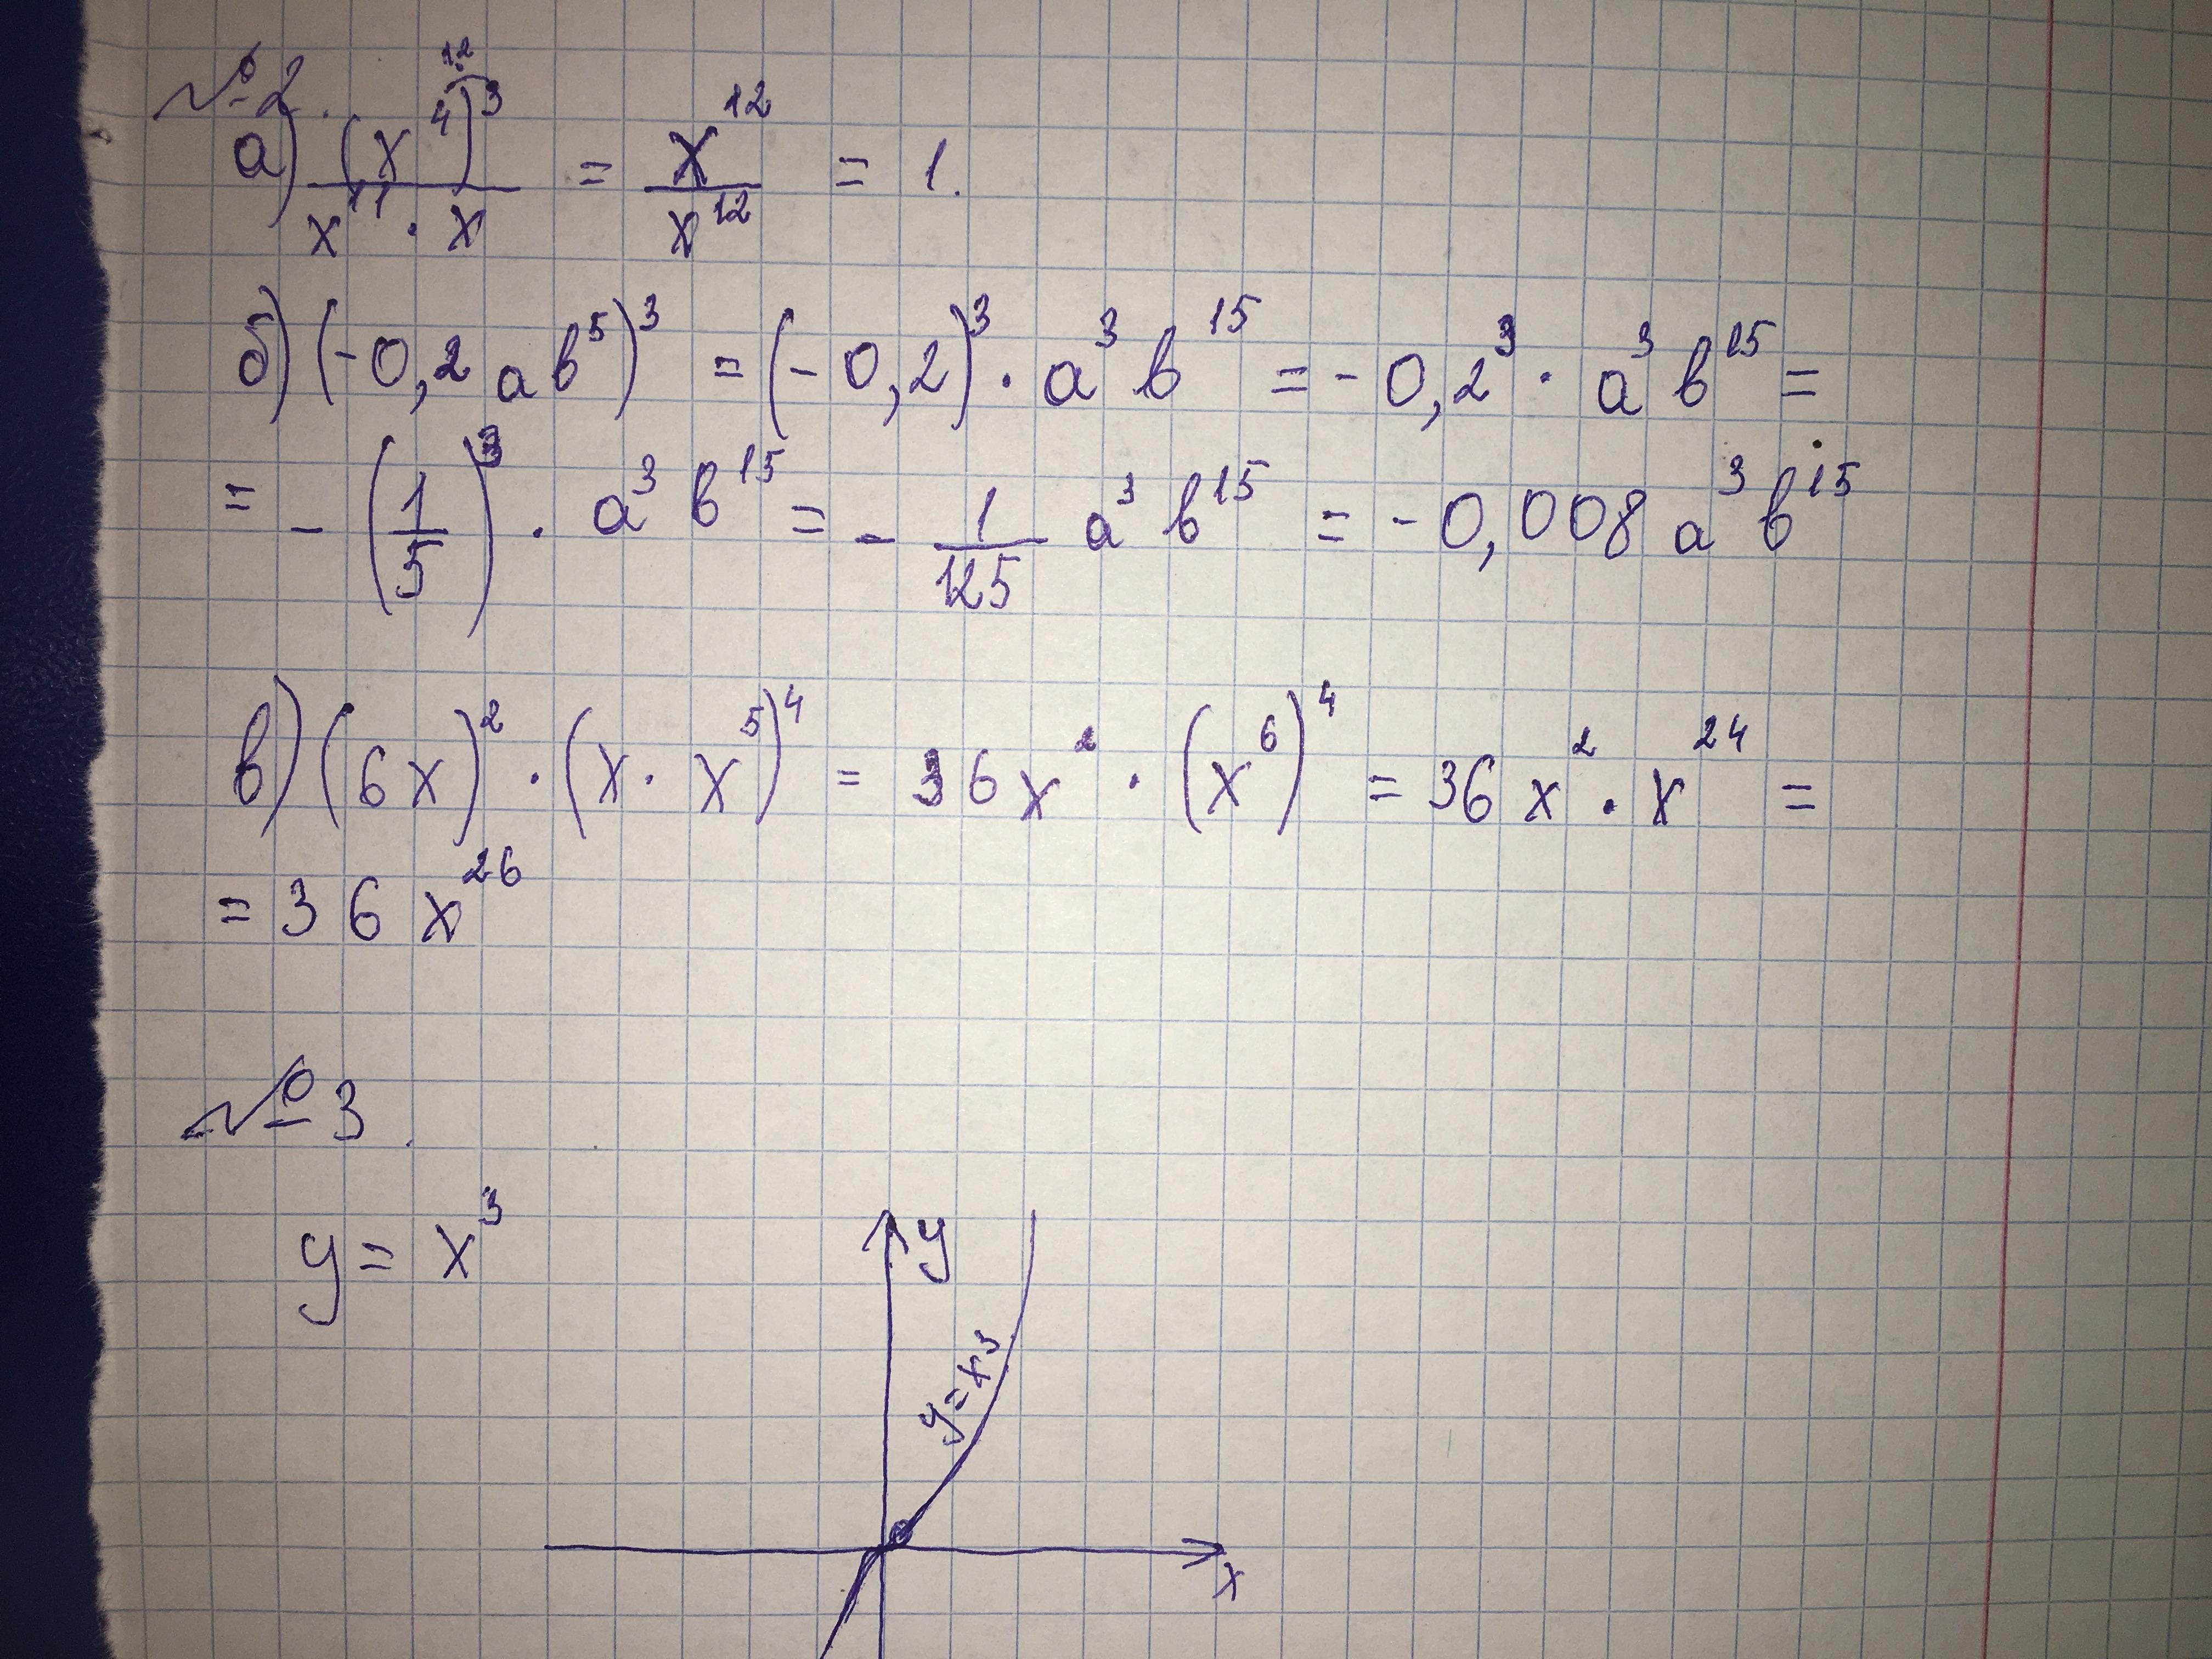 №2.
а) (x⁴)³ / x¹¹ · x = x¹² / x¹² = 1.
12
б) (-0,2 ab⁵)³ = (-0,2)³ · a³ b¹⁵ = -0,2³ · a³ b¹⁵ =
= - (1/5)³ · a³ b¹⁵ = - 1/125 a³ b¹⁵ = -0,008 a³ b¹⁵
в) (6x)² · (x · x⁵)⁴ = 36x² · (x⁶)⁴ = 36x² · x²⁴ =
= 36x²⁶
№3.
y = x³
y
y=x³
x